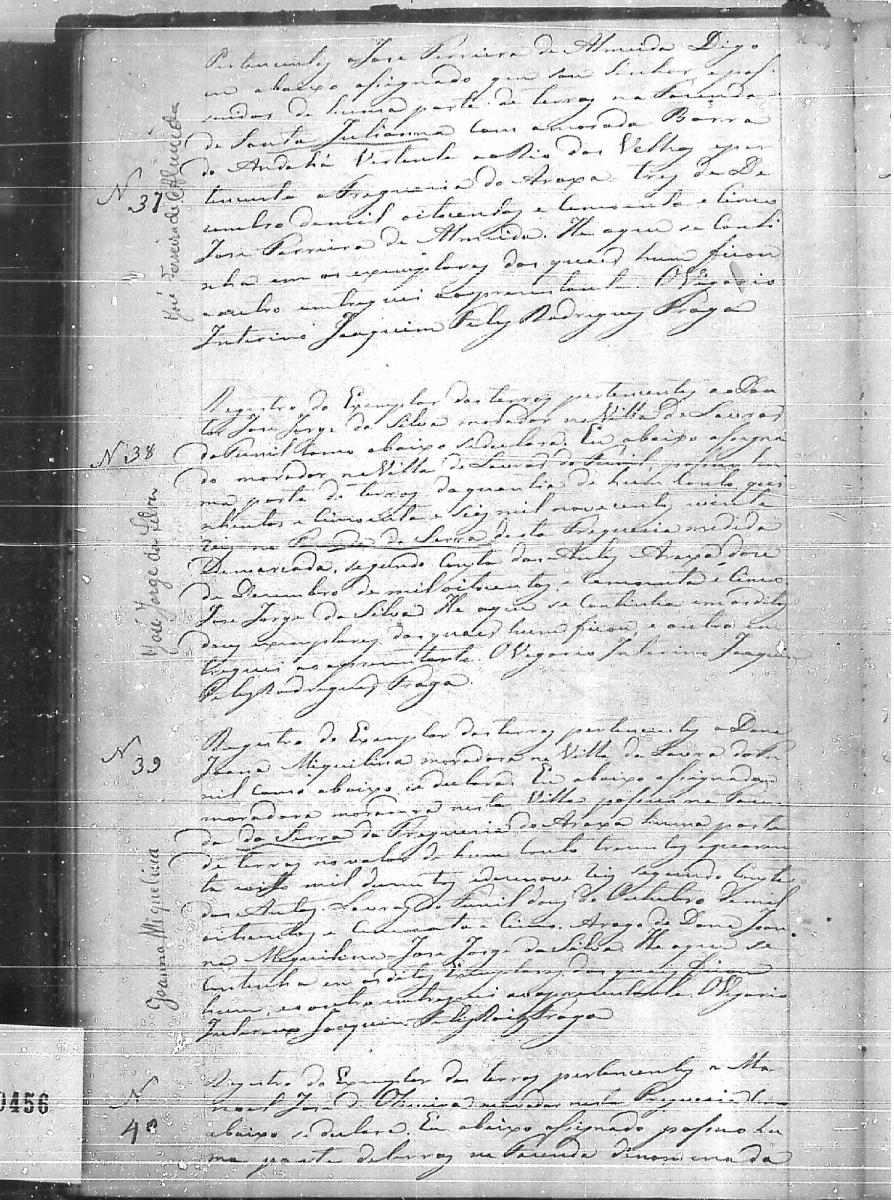 Pertencentes a Jose Ferreira de Almeida Digo
eu abaixo assignado que sou Senhor, e pos
suidor de huma parte de terras na Fazenda
de Santa Julianna com a morada Barra
do Andahá Vertente ao Rio das Velhas e per
tencente a Freguesia do Araxa. trez de De
zembro de mil oitocentos e cincoenta e cinco
Jose Ferreira de Almeida. He o que se conti
nha em os exemplares dos quaes hum ficou
e outro entreguei ao apresentante. O Vigario
Interino Joaquim Felis Rodrigues Fraga
N 37
José Ferreira de Almeida
Registro do Exemplar das terras pertencentes ao Dou
tor Jose Jorge da Silva morador na Villa de Lavras
do Funil como abaixo se declara. Eu abaixo assigna
do morador na Villa de Lavras do Funil, possuo hu
ma parte de terras da quantia de hum conto qui
nhentos e cincoenta e seis mil novecentos e vinte
reis na Fazda da Serra desta Freguesia medida
Demarcada, segundo consta dos Autos Araxá doze
de Dezembro de mil oitocentos, e cincoenta e cinco
Jose Jorge da Silva He o que se continha em os ditos
dous exemplares dos quaes hum ficou, e outro en
treguei ao apresentante. O Vigario Interino Joaquim
Felis Rodrigues Fraga.
N 38
José Jorge da Silva
Registro do Exemplar das terras pertencentes a Dona
Joana Miquilina moradora na Villa de Lavra do Fu
nil como abaixo se declara. Eu abaixo assignada
moradora nesta Villa possuo na Fazen
da da Serra da Freguesia do Araxa huma parte
de terras no valor de hum conto trezentos e quaren
ta e mil duzentos e nove reis segundo consta
dos Autos. Lavras do Funil dous de Outubro de mil
oitocentos e cincoenta e cinco. Arogo de Dona Joan
na Miquilina Jose Jorge da Silva He o que se
continha em os ditos Exemplares dos quaes ficou
hum, e o outro entreguei ao apresentante. O Vigario
Interino Joaquim Felis Roiz Fraga
N 39
Joanna Miquelina
Registro do Exemplar das terras pertencentes a Ma
noel José de Oliveira morador nesta Freguesia como
abaixo se declara. Eu abaixo assignado possuo hu
ma parte de terras na Fazenda denominada
N 40
0456